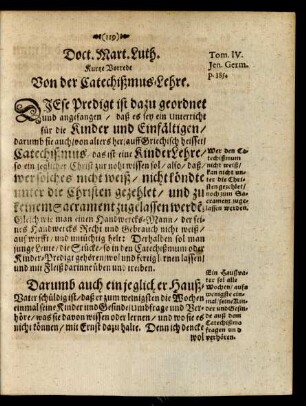 (119)
Doct. Mart. Luth.
Kurtze Vorrede
Von der Catechißmus-Lehre.
Tom. IV.
Jen. Germ.
p. 384
DIese Predigt ist dazu geordnet
und angefangen / daß es sey ein unterricht
für die Kinder und Einfältigen /
darumb sie auch / von alters her / auff Griechisch heisset /
Catechißmus / das ist eine Kinder Lehre /
so ein jeglicher Christ zur noht wissen sol / also / daß /
wer solches nicht weiß / nicht köndte
unter die Christen gezehlet / und zu
keinem Sacrament zugelassen werden.
Gleich wie man einen Handwercks-Mann / der sei-
nes Handwercks Recht und Gebrauch nicht weiß /
auswirfft / und untüchtig helt: Derhalben sol man
junge Leute / die Stücke / so in den Catechißmum oder
Kinder-Predigt gehören / wol und fertig lernen lassen /
und mit Fleiß darinn üben und treiben.
Wer den Ca-
techißmum
nicht weiß /
kan nicht un-
ter die Chri-
sten gezehlet /
noch zum Sa-
crament zuge-
lassen werden.
Darumb auch ein jeglicher Hauß-
Vater schüldig ist / daß er zum wenigsten die Wochen
einmal seine Kinder und Gesinde / umbfrage und Ver-
höre / was sie davon wissen oder lernen / und wo sie es
nicht können / mit Ernst dazu halte. Denn ich dencke
wol
Ein Haußva-
ter sol alle
Wochen / auffs
wenigste ein-
mal / seine Kin-
der und Gesin-
de auß dem
Catechißmo
fragen und
verhören.